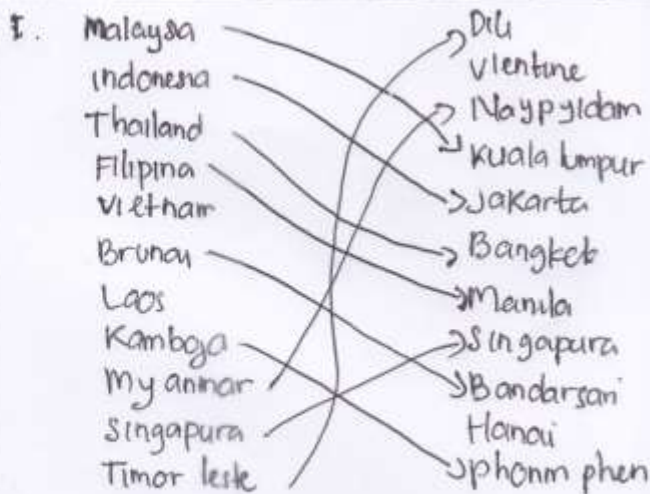 I. Malaysa
Indonesia
Thailand
Filipina
Vietnam
Brunai
Laos
Kamboja
Myanmar
Singapura
Timor leste
Dili
Vientine
Naypyidam
Kuala lumpur
Jakarta
Bangkek
Manila
Singapura
Bandarsari
Hanoi
phonm phen